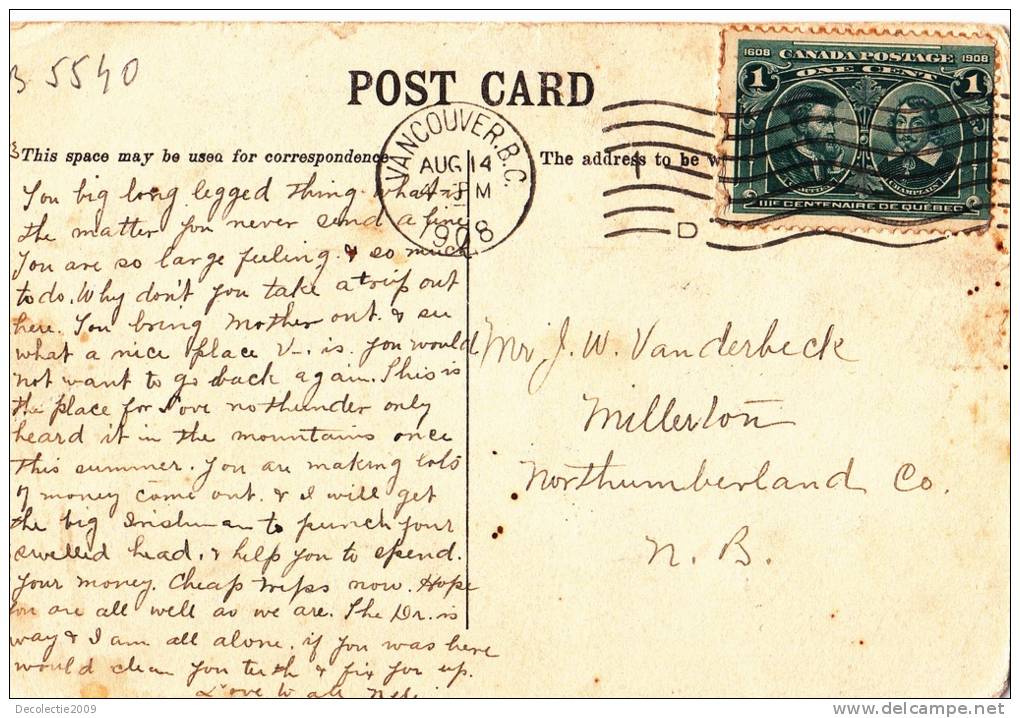 3 5540
POST CARD
1608 CANADA POSTAGE 1908
1 ONE CENT 1
CARTIER CHAMPLAIN
IIIE CENTENAIRE DE QUEBEC
VANCOUVER.B.C.
AUG 14
4 PM
1908
D
This space may be used for correspondence
The address to be w
You big long legged thing what is
the matter you never send a line
You are so large feeling. & so much
to do. Why don't you take a trip out
here. You bring Mother out. & see
what a nice place V-. is. you would
not want to go back again. This is
the place for Love no thunder only
heard it in the mountains once
this summer. You are making lots
of money come out. & I will get
the big Irishman to punch your
swelled head. & help you to spend.
your money. Cheap trips now. Hope
you are all well as we are. The Dr. is
way & I am all alone. if you was here
would clean you teeth & fix you up.
Love to all
Mr J. W. Vanderbeck
Millerton
Northumberland Co.
N. B.
Decolectie2009
delcampe.net